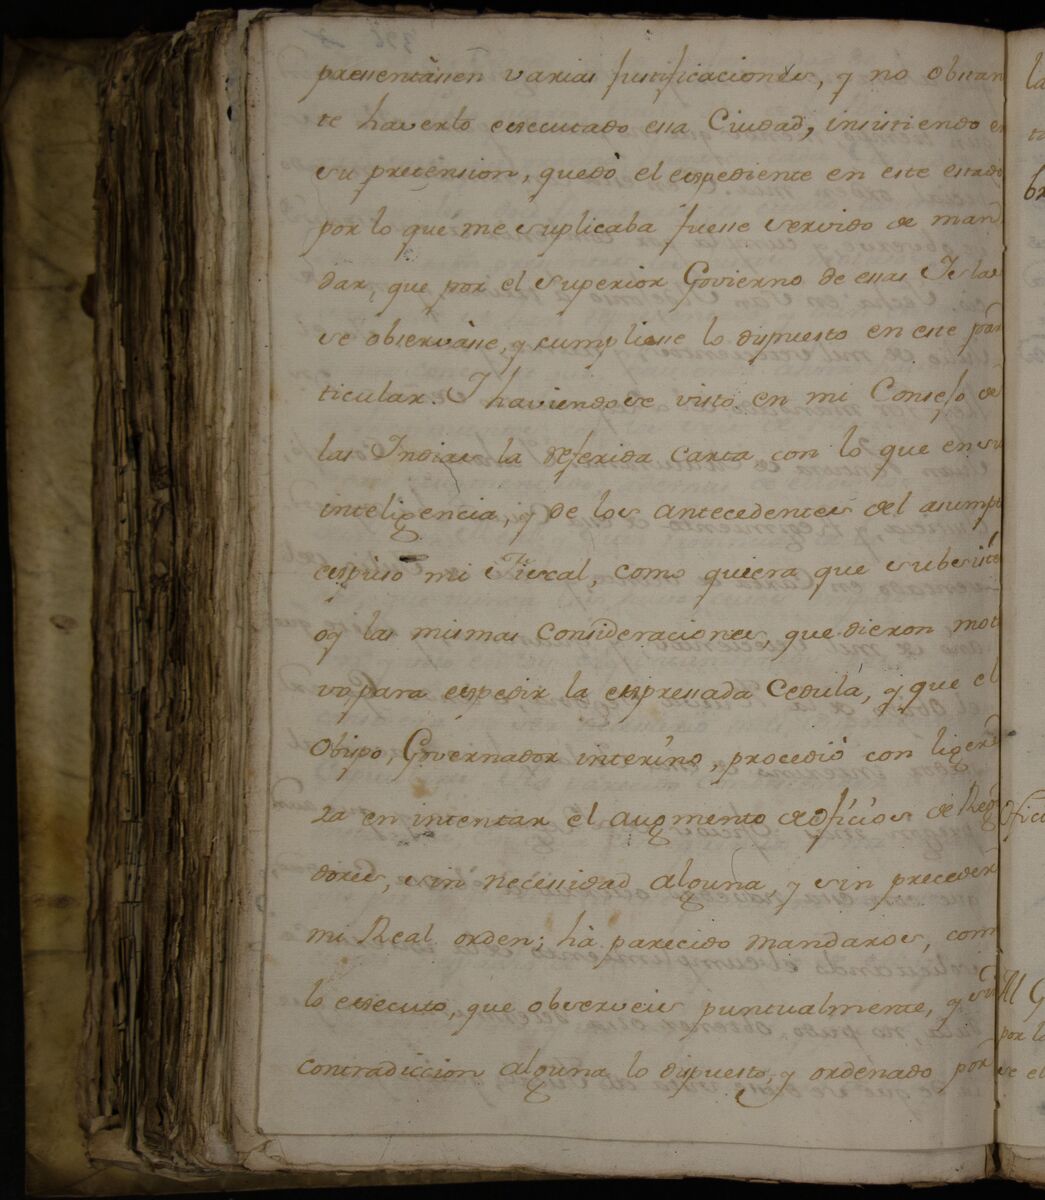 presentássen varias justificaciones, y no obstan
te haverlo executado essa Ciudad, insistiendo en
su pretension, quedò el expediente en este estado
por lo que me suplicaba fuesse servido de man
dar, que por el superior Govierno de essas Islas
se observàsse, y cumpliesse lo dispuesto en este par
ticular. Y haviendose visto en mi Consejo de
las Indias la referida carta con lo que en su
inteligencia, y de los antecedentes del asumpto
expuso mi Fiscal, como quiera que subsisten
oy las mismas consideraciones, que dieron moti
vo para expedir la expressada Cedula, y que el
Obispo, Governador interino, procediò con ligere
za en intentar el augmento de ofícios de Regi
dores, sin necessidad alguna, y sin preceder
mi Real orden; hà parecido mandaros, como
lo executo, que observeis puntualmente, y sin
contradiccion alguna lo dispuesto, y ordenado por